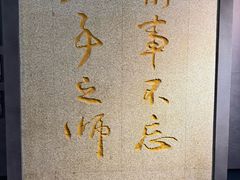 前事不忘
事之师